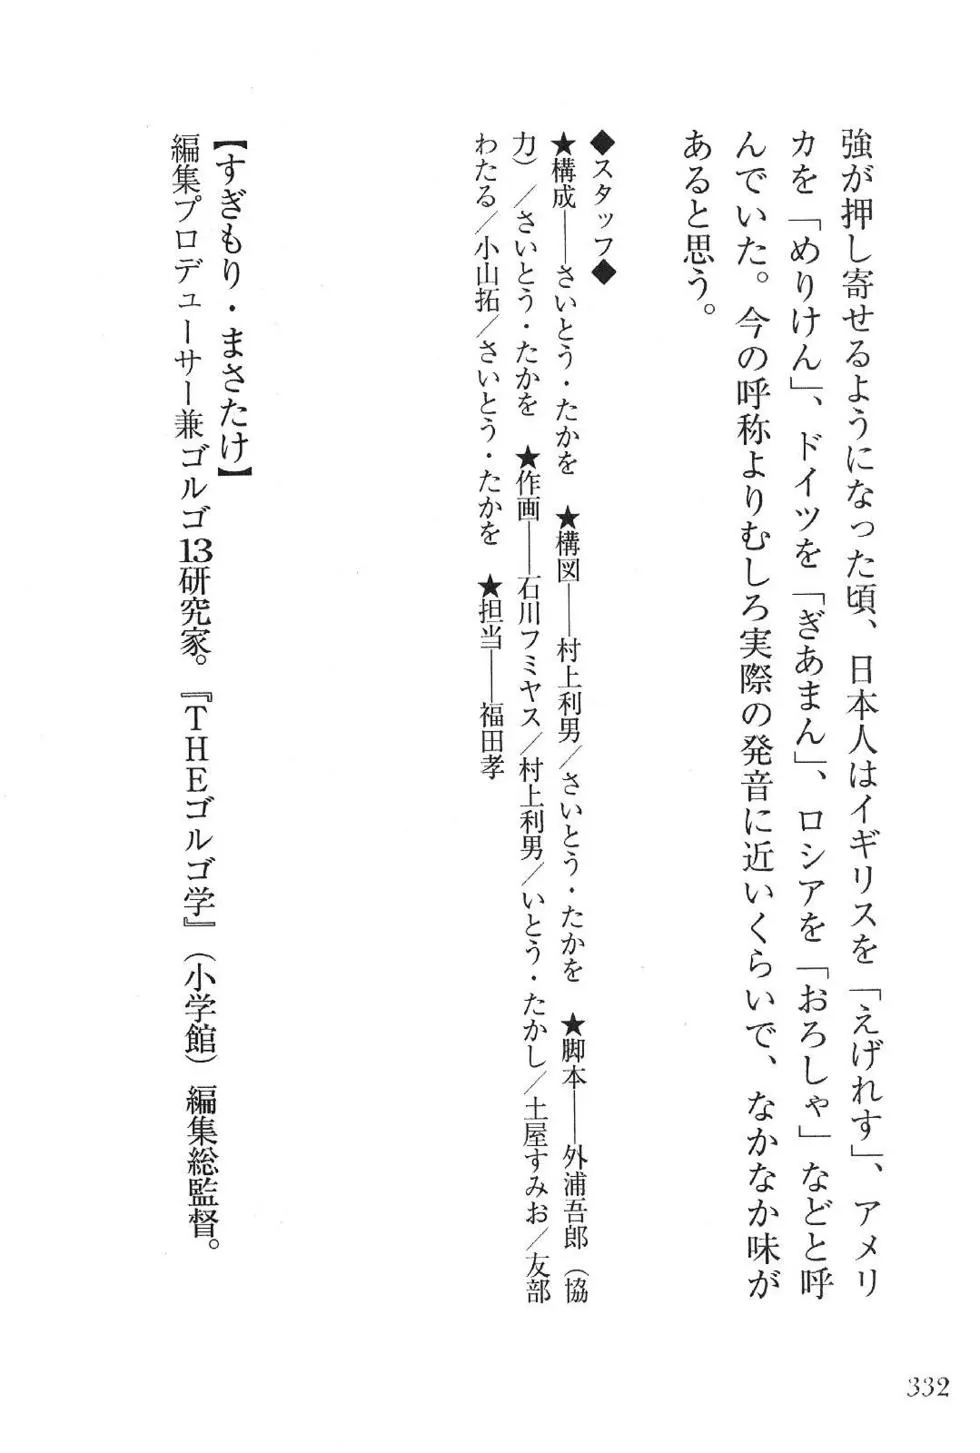 強が押し寄せるようになった頃、日本人はイギリスを「えげれす」、アメリ
カを「めりけん」、ドイツを「ぎあまん」、ロシアを「おろしゃ」などと呼
んでいた。今の呼称よりむしろ実際の発音に近いくらいで、なかなか味が
あると思う。
◆スタッフ◆
★構成――さいとう・たかを　★構図――村上利男／さいとう・たかを　★脚本――外浦吾郎（協
力）／さいとう・たかを　★作画――石川フミヤス／村上利男／いとう・たかし／土屋すみお／友部
わたる／小山拓／さいとう・たかを　★担当――福田孝
【すぎもり・まさたけ】
編集プロデューサー兼ゴルゴ13研究家。『THEゴルゴ学』（小学館）編集総監督。
332